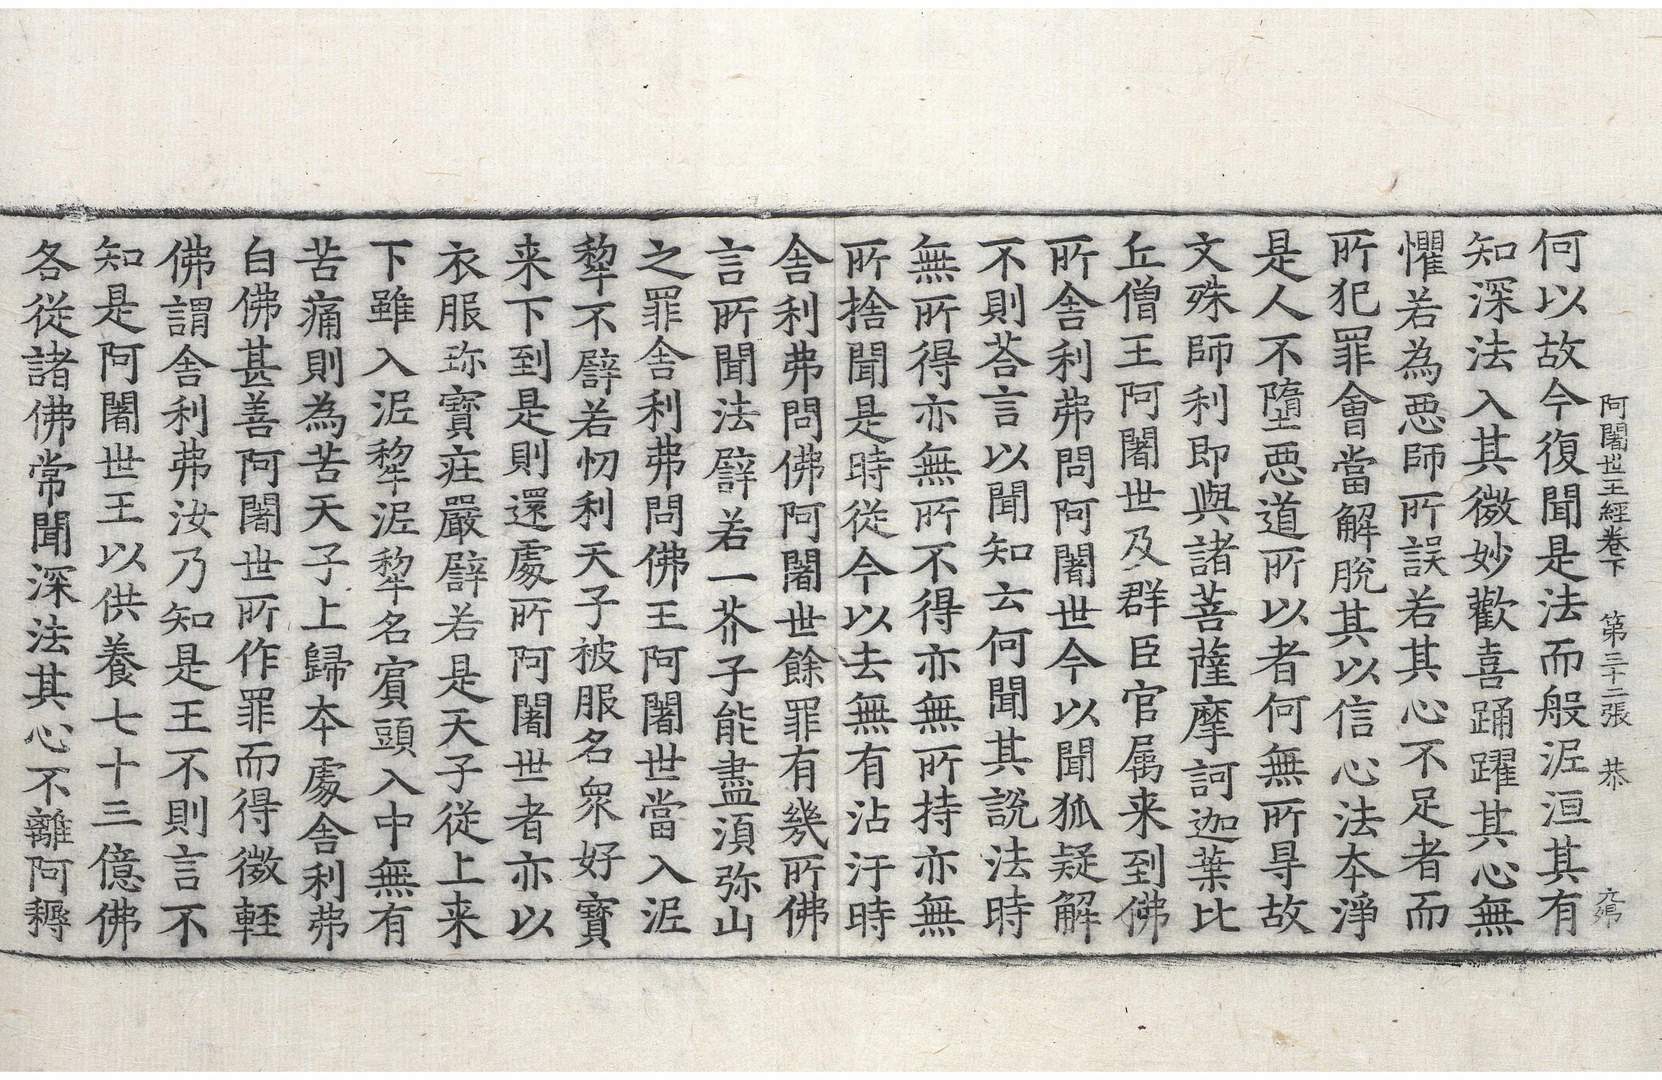 阿闍世王經卷下　第三十二張　恭
何以故今復聞是法而般泥洹其有
知深法入其微妙歡喜踊躍其心無
懼若為惡師所誤若其心不足者而
所犯罪會當解脫其以信心法本淨
是人不墮惡道所以者何無所㝵故
文殊師利即與諸菩薩摩訶迦葉比
丘僧王阿闍世及群臣官属来到佛
所舍利弗問阿闍世今以聞狐疑解
不則荅言以聞知云何聞其說法時
無所得亦無所不得亦無所持亦無
所捨聞是時從今以去無有沾汙時
舍利弗問佛阿闍世餘罪有幾所佛
言所聞法譬若一芥子能盡湏弥山
之罪舍利弗問佛王阿闍世當入泥
犂不譬若忉利天子被服名衆好寶
来下到是則還處所阿闍世者亦以
衣服珎寶莊嚴譬若是天子從上来
下雖入泥犂泥犂名賔頭入中無有
苦痛則為苦天子上歸本處舍利弗
白佛甚善阿闍世所作罪而得微輕
佛謂舍利弗汝乃知是王不則言不
知是阿闍世王以供養七十三億佛
各從諸佛常聞深法其心不離阿耨